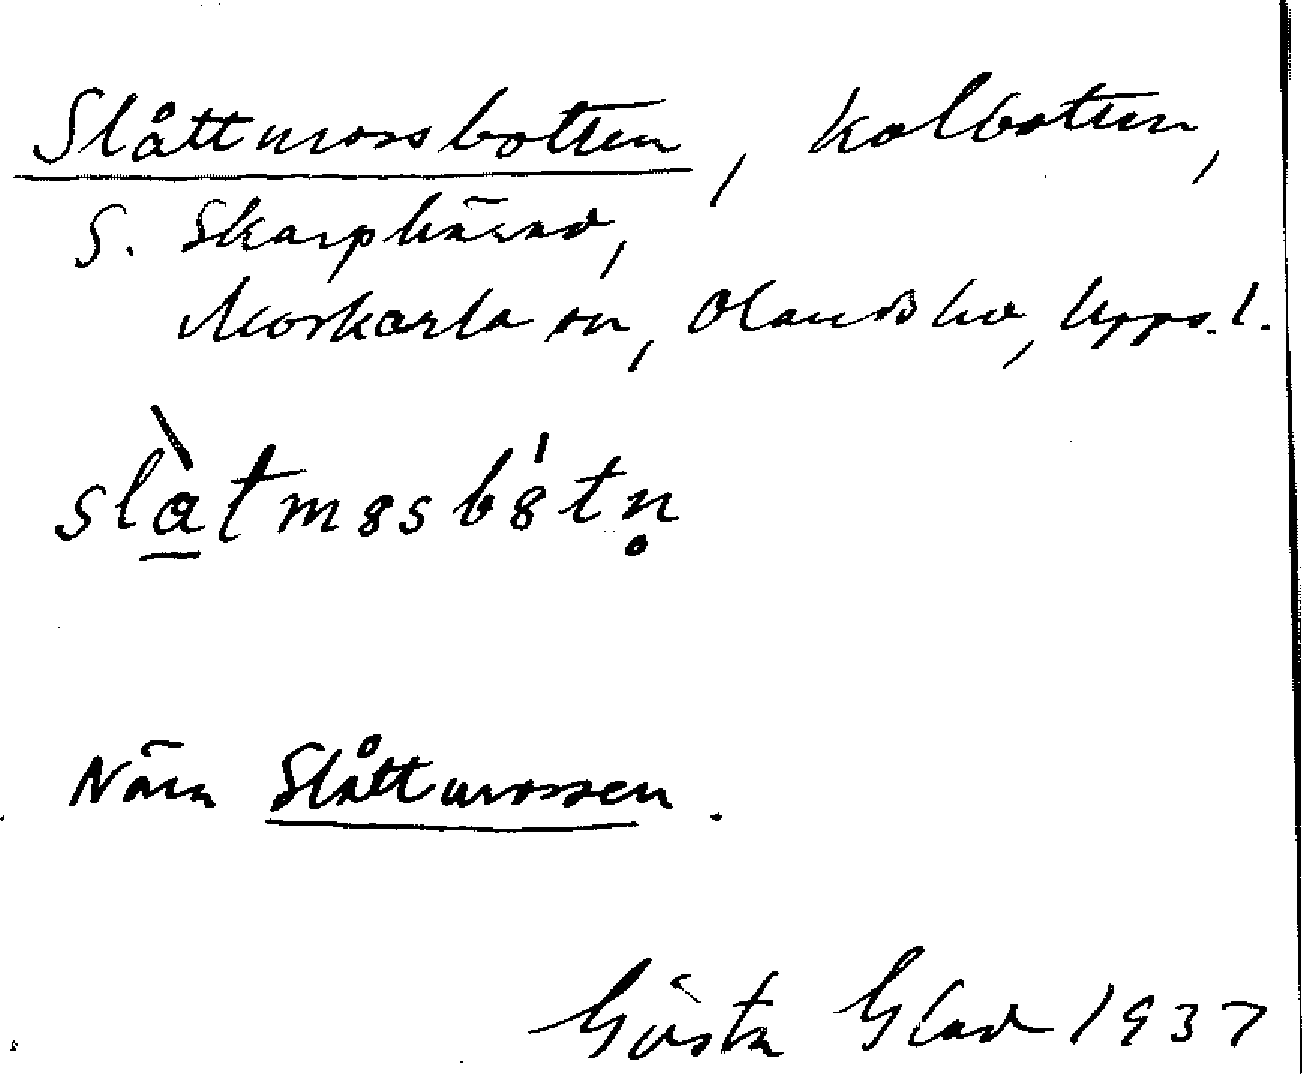 Slåttmossbotten, kolbotten,
S. Skarphärad,
Morkarla sn, Olands hd, Upps. l.
slàtmɞsbɞ́tn̥
Nära Slåttmossen.
Gösta Glad 1937